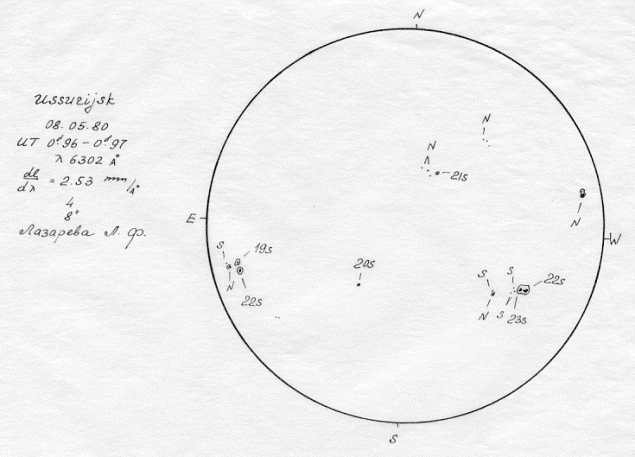 Ussurijsk
08.05.80
UT 0ᵈ96 – 0ᵈ97
λ 6302 A°
dl/dλ = 2.53 mm/A°
4
8"
Лазарева Л. Ф.
N
N
N
21s
N
E
W
S
19s
N
22s
20s
S
S
22s
N
S
23s
S